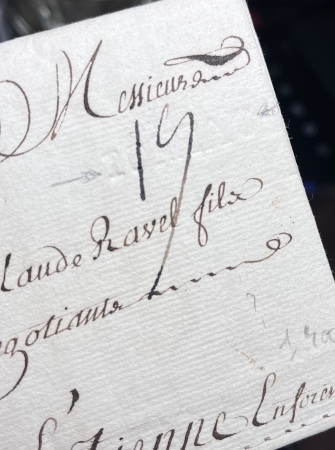 Messieurs
19
laude Ravel fils
egotiants
Etienne Enforez